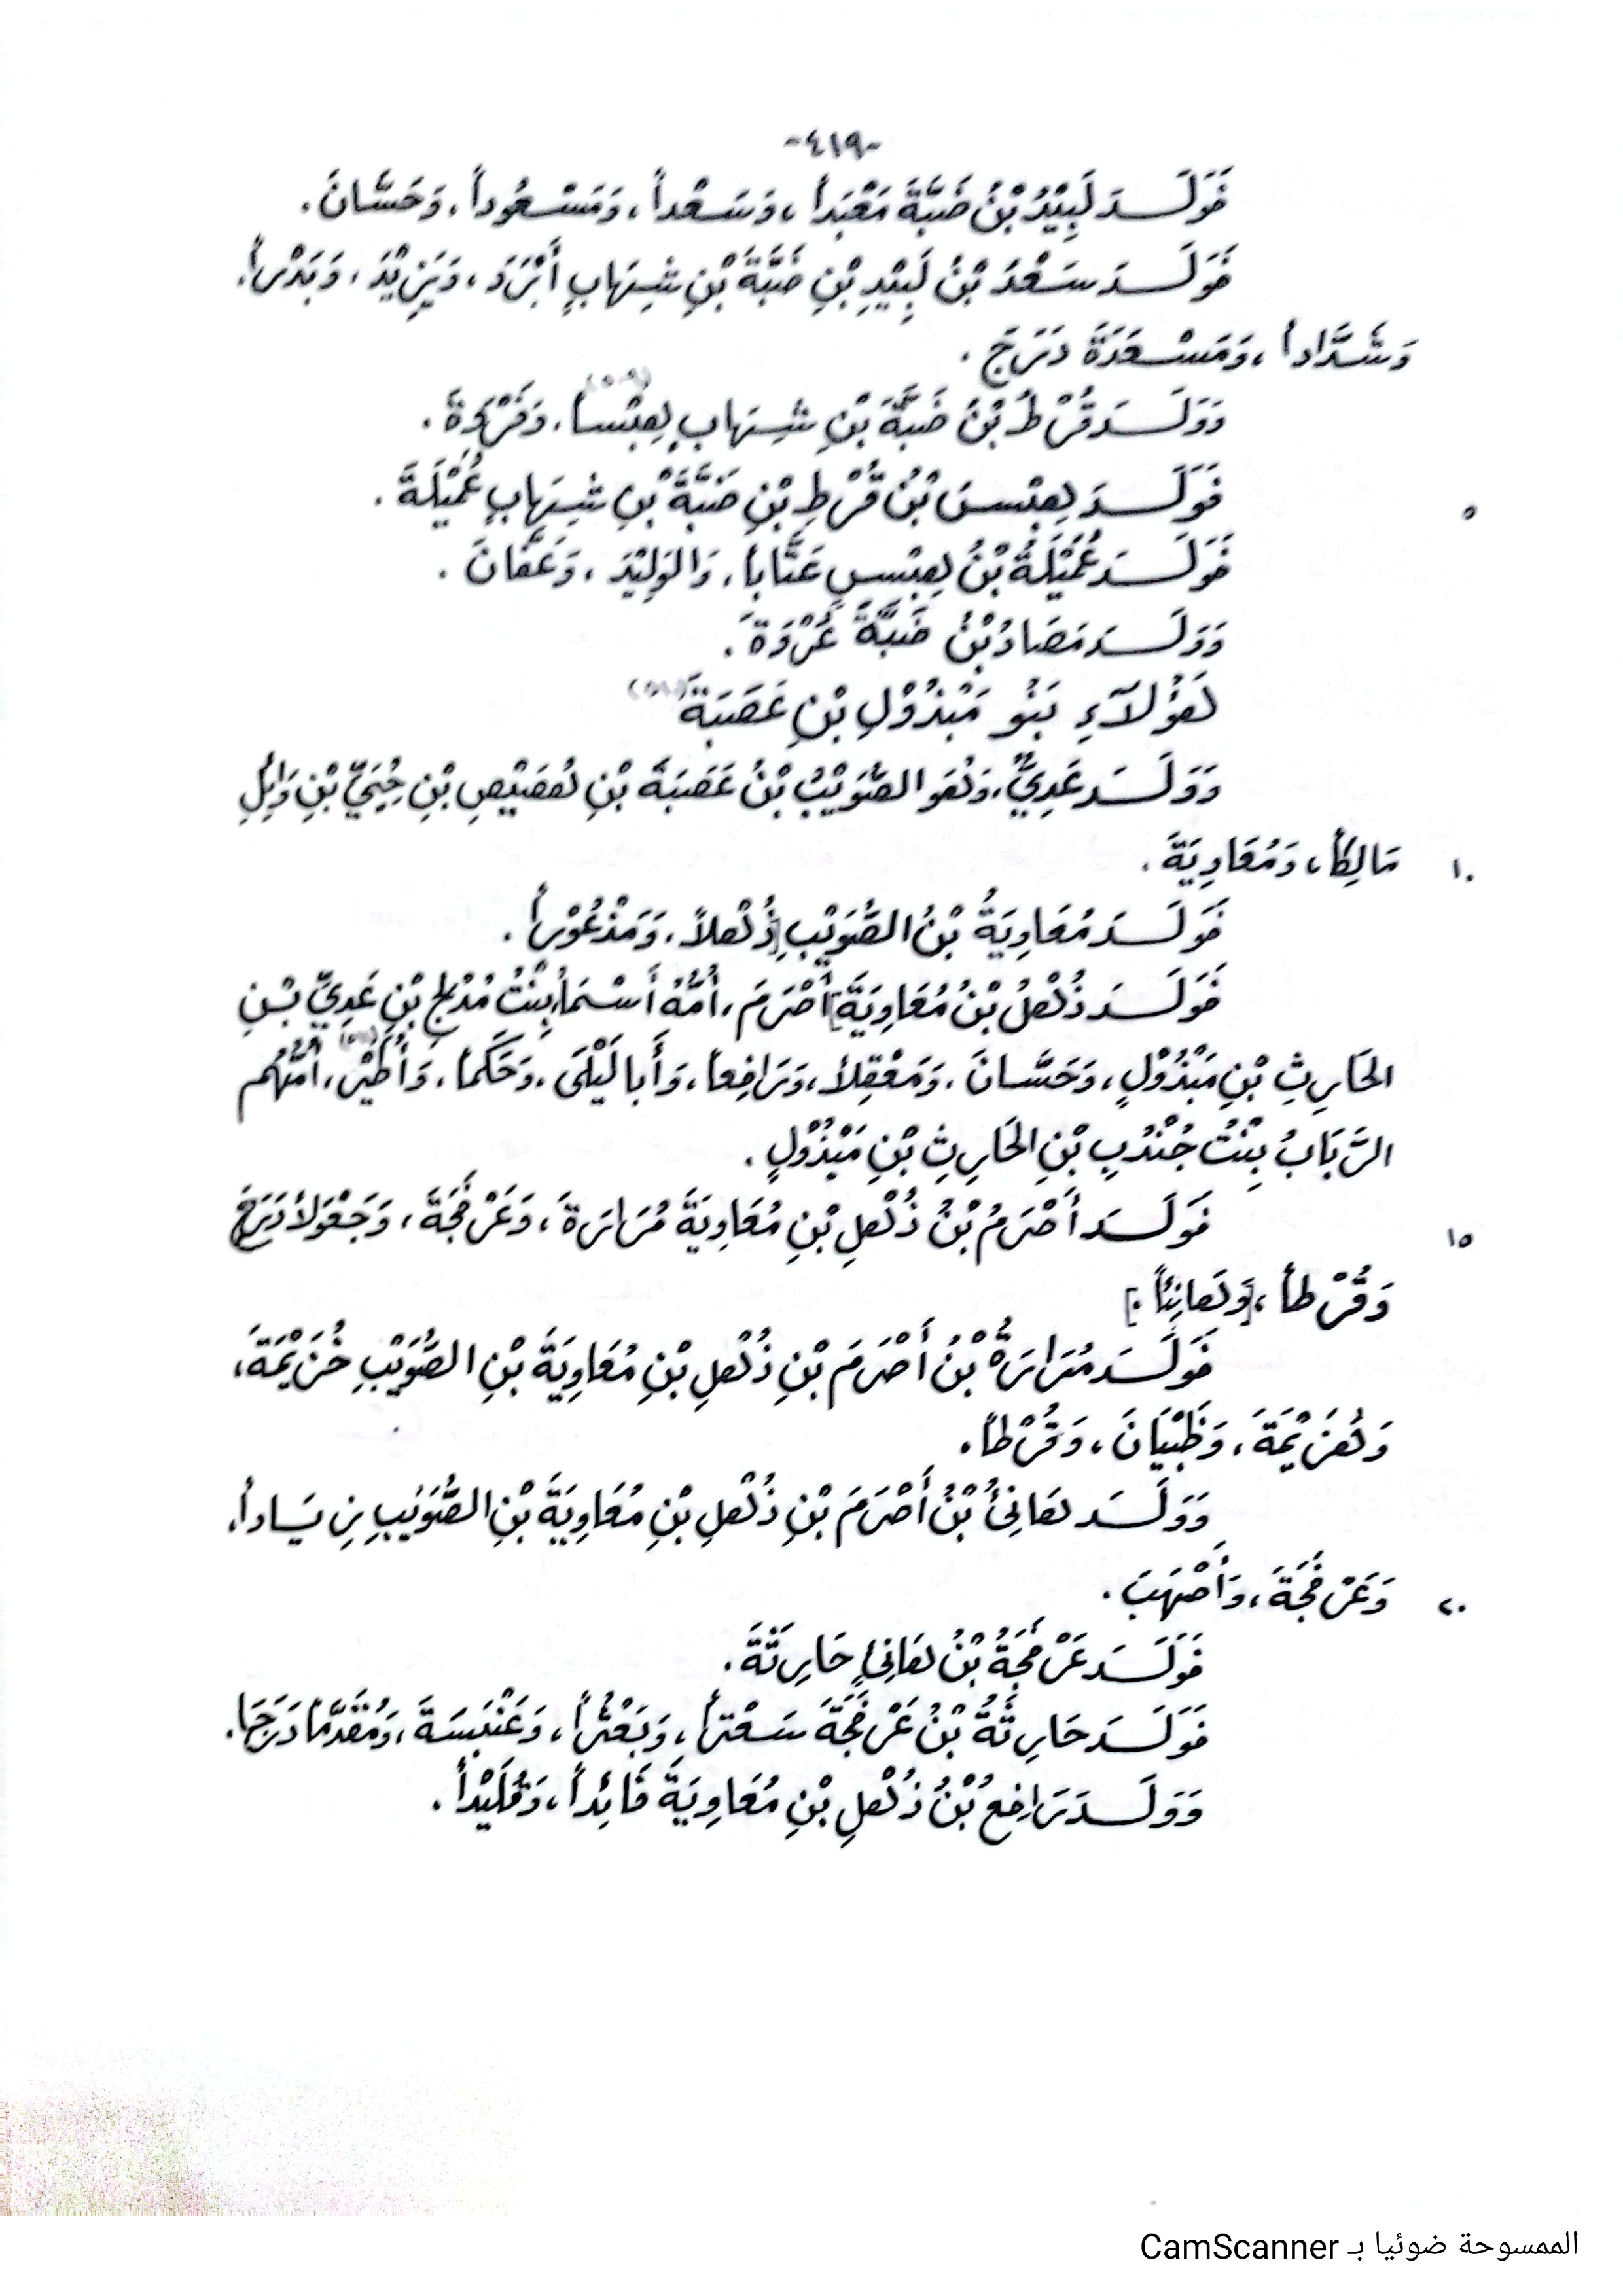 -٤١٩-
فَوَلَدَ لَبِيْدُ بْنُ ضَبَّةَ مَعْبَداً، وَسَعْداً، وَمَسْعُوداً، وَحَسَّانَ.
فَوَلَدَ سَعْدُ بْنُ لَبِيْدِ بْنِ ضَبَّةَ بْنِ شِهَابٍ أَبْرَدَ، وَيَزِيْدَ، وَبَدْراً،
وَشَدَّاداً، وَمَسْعَدَةَ دَرَجَ.
وَوَلَدَ قُرْطُ بْنُ ضَبَّةَ بْنِ شِهَابٍ هِبْساً، وَفَرْوَةَ.
٥ فَوَلَدَ هِبْسُ بْنُ قُرْطِ بْنِ ضَبَّةَ بْنِ شِهَابٍ عُمَيْلَةَ.
فَوَلَدَ عُمَيْلَةُ بْنُ هِبْسٍ عَتَّاباً، وَالوَلِيْدَ، وَعَفَّانَ.
وَوَلَدَ مَصَادُ بْنُ ضَبَّةَ عُرْوَةَ.
هَؤُلآءِ بَنُو مَبْذُوْلِ بْنِ عَصَبَةَ
وَوَلَدَ عَدِيٌّ، وَهُوَ الصُّوَيْبُ بْنُ عَصَبَةَ بْنِ هُصَيْصِ بْنِ حُيَيِّ بْنِ وَائِلِ
١٠ مَالِكاً، وَمُعَاوِيَةَ.
فَوَلَدَ مُعَاوِيَةُ بْنُ الصُّوَيْبِ [ذُهْلاً، وَمَذْعُوْراً.
فَوَلَدَ ذُهْلُ بْنُ مُعَاوِيَةَ] أَصْرَمَ، أُمُّهُ أَسْمَاءُ بِنْتُ مُدْلِجِ بْنِ عَدِيِّ بْنِ
الحَارِثِ بْنِ مَبْذُوْلٍ، وَحَسَّانَ، وَمَعْقِلاً، وَرَافِعاً، وَأَبَا لَيْلَى، وَحَكَماً، وَأُطَيْرَ، أُمُّهُم
الرَّبَابُ بِنْتُ جُنْدُبِ بْنِ الحَارِثِ بْنِ مَبْذُوْلٍ.
١٥ فَوَلَدَ أَصْرَمُ بْنُ ذُهْلِ بْنِ مُعَاوِيَةَ مُرَارَةَ، وَعَرْفَجَةَ، وَجَعْوَلاً دَرَجَ
وَقُرْطاً، [وَهَانِئاً.]
فَوَلَدَ مُرَارَةُ بْنُ أَصْرَمَ بْنِ ذُهْلِ بْنِ مُعَاوِيَةَ بْنِ الصُّوَيْبِ خُزَيْمَةَ،
وَهُزَيْمَةَ، وَظَبْيَانَ، وَقُرْطاً.
وَوَلَدَ هَانِئُ بْنُ أَصْرَمَ بْنِ ذُهْلِ بْنِ مُعَاوِيَةَ بْنِ الصُّوَيْبِ زِيَاداً،
٢٠ وَعَرْفَجَةَ، وَأَصْهَبَ.
فَوَلَدَ عَرْفَجَةُ بْنُ هَانِئٍ حَارِثَةَ.
فَوَلَدَ حَارِثَةُ بْنُ عَرْفَجَةَ سَعْتَراً، وَبَعْثَراً، وَعَنْبَسَةَ، وَمُقَدَّماً دَرَجَا.
وَوَلَدَ رَافِعُ بْنُ ذُهْلِ بْنِ مُعَاوِيَةَ قَائِداً، وَقُلَيْداً.
الممسوحة ضوئيا بـ CamScanner